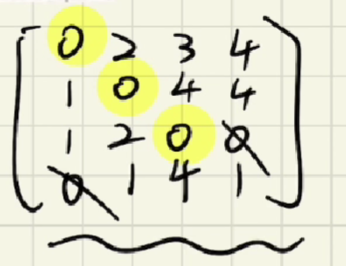 0 2 3 4
1 0 4 4
1 2 0 0
0 1 4 1